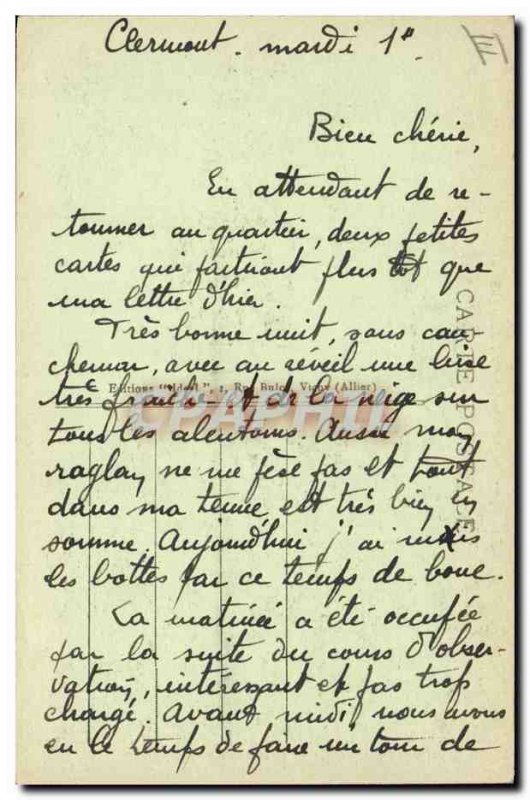 III
Clermont. mardi 1er.
Bien chérie,
En attendant de re-
tourner au quartier, deux petites
cartes qui partiront plus tôt que
ma lettre d'hier.
Très bonne nuit, sans cau-
chemar, avec au réveil une bise
très fraîche et de la neige sur
tous les alentours. Aussi mon
raglan ne me pèse pas et tout
dans ma tenue est très bien en
somme. Aujourd'hui j'ai mis
les bottes par ce temps de boue.
La matinée a été occupée
par la suite du cours d'obser-
vation, intéressant et pas trop
chargé. Avant midi nous avons
eu le temps de faire un tour de
CARTE POSTALE
Editions "Idéal", 1, Rue , Vichy (Allier)
CPAPHIL